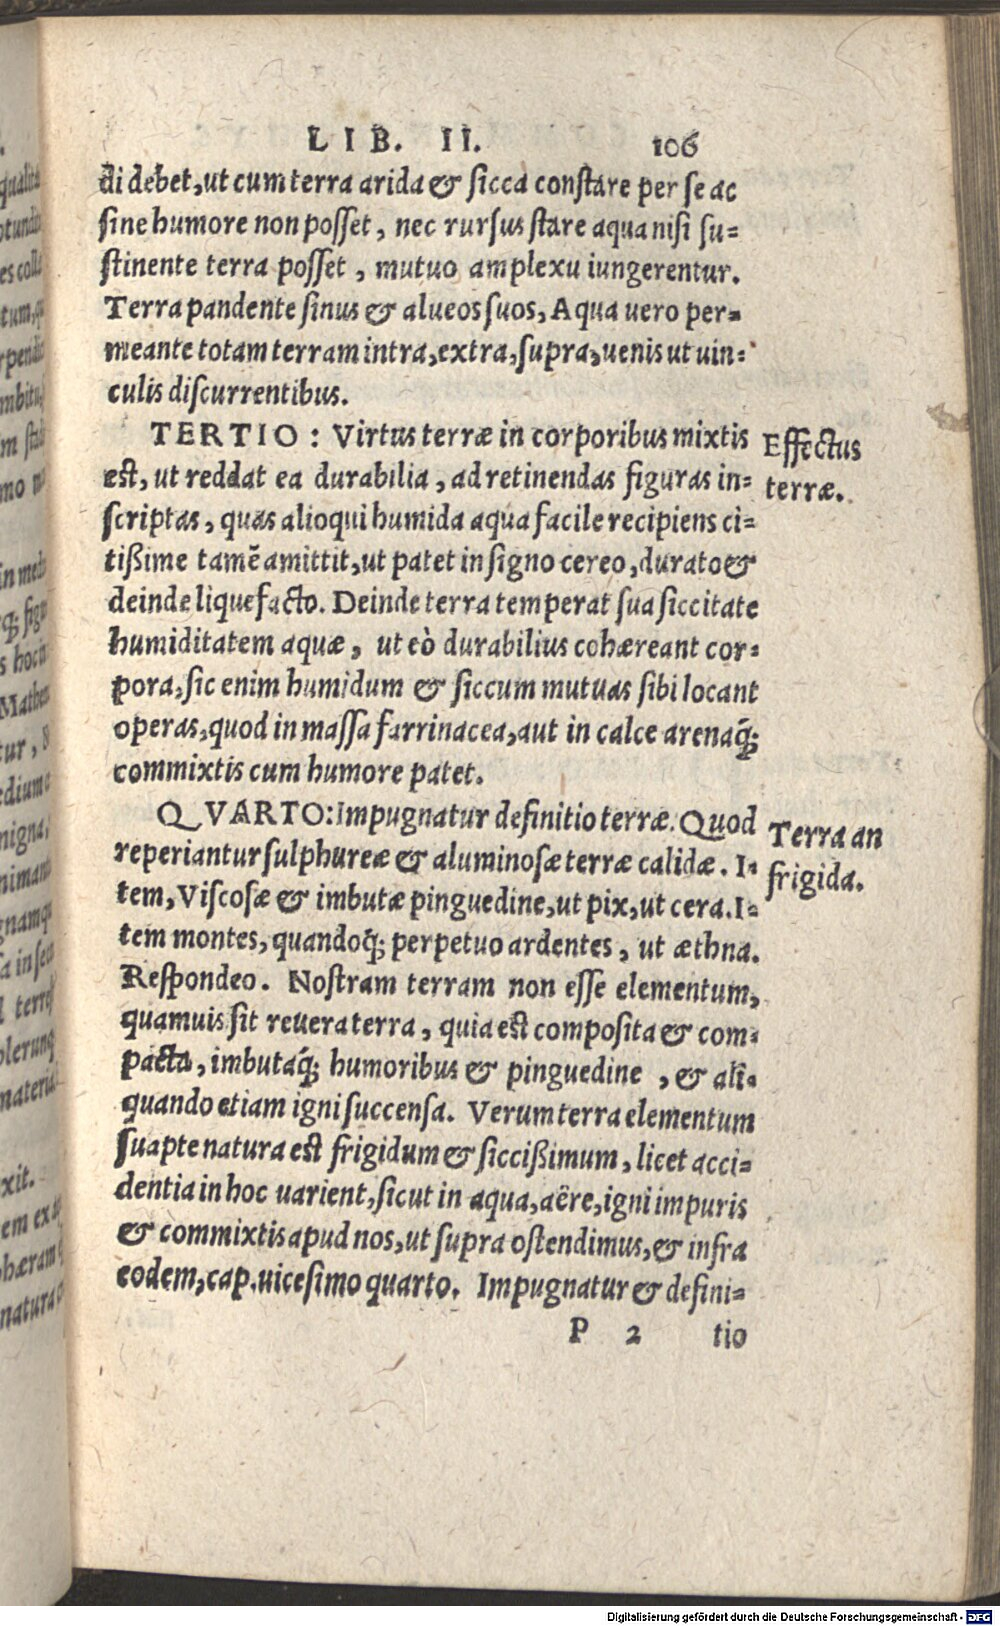 LIB. II. 106
di debet, ut cum terra arida & sicca constare per se ac
sine humore non posset, nec rursus stare aqua nisi su=
stinente terra posset, mutuo amplexu iungerentur.
Terra pandente sinus & alueos suos, Aqua uero per=
meante totam terram intra, extra, supra, uenis ut uin=
culis discurrentibus.
TERTIO: Virtus terræ in corporibus mixtis
est, ut reddat ea durabilia, ad retinendas figuras in=
scriptas, quas alioqui humida aqua facile recipiens ci=
tißime tamẽ amittit, ut patet in signo cereo, durato &
deinde liquefacto. Deinde terra temperat sua siccitate
humiditatem aquæ, ut eò durabilius cohæreant cor=
pora, sic enim humidum & siccum mutuas sibi locant
operas, quod in massa farrinacea, aut in calce arenaq́;
commixtis cum humore patet.
Effectus
terræ.
QVARTO: Impugnatur definitio terræ. Quod
reperiantur sulphureæ & aluminosæ terræ calidæ. I=
tem, Viscosæ & imbutæ pinguedine, ut pix, ut cera. I=
tem montes, quandoq́; perpetuo ardentes, ut æthna.
Respondeo. Nostram terram non esse elementum,
quamuis sit reuera terra, quia est composita & com=
pacta, imbutaq́; humoribus & pinguedine, & ali=
quando etiam igni succensa. Verum terra elementum
suapte natura est frigidum & siccißimum, licet acci=
dentia in hoc uarient, sicut in aqua, aëre, igni impuris
& commixtis apud nos, ut supra ostendimus, & infra
eodem, cap. uicesimo quarto. Impugnatur & defini=
Terra an
frigida.
P 2 tio
Digitalisierung gefördert durch die Deutsche Forschungsgemeinschaft - DFG